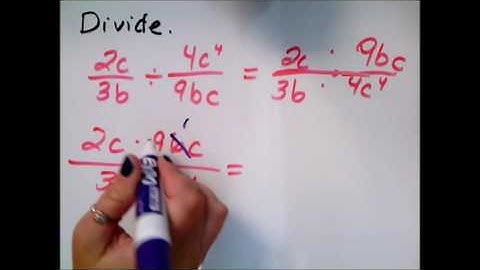 Divide.
2c/3b ÷ 4c⁴/9bc = 2c · 9bc/3b · 4c⁴
2c · 9bc/3 =
EXPO